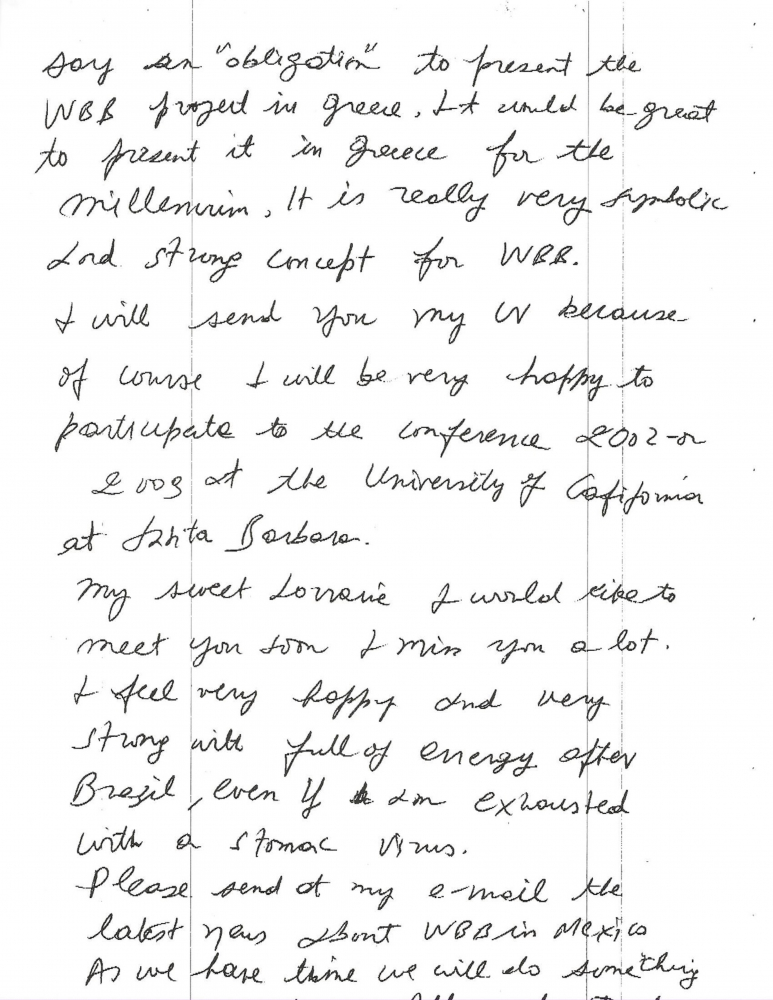 say an "obligation" to present the
WBB project in Greece. It would be great
to present it in Greece for the
millenium, It is really very symbolic
and strong concept for WBB.
I will send you my CV because
of course I will be very happy to
participate to the conference 2002 or
2003 at the University of California
at Santa Barbara.
My sweet Lorraine I would like to
meet you soon I miss you a lot.
I feel very happy and very
strong with full of energy after
Brazil, even if I am exhausted
with a stomac virus.
Please send at my e-mail the
latest news about WBB in Mexico
As we have time we will do something